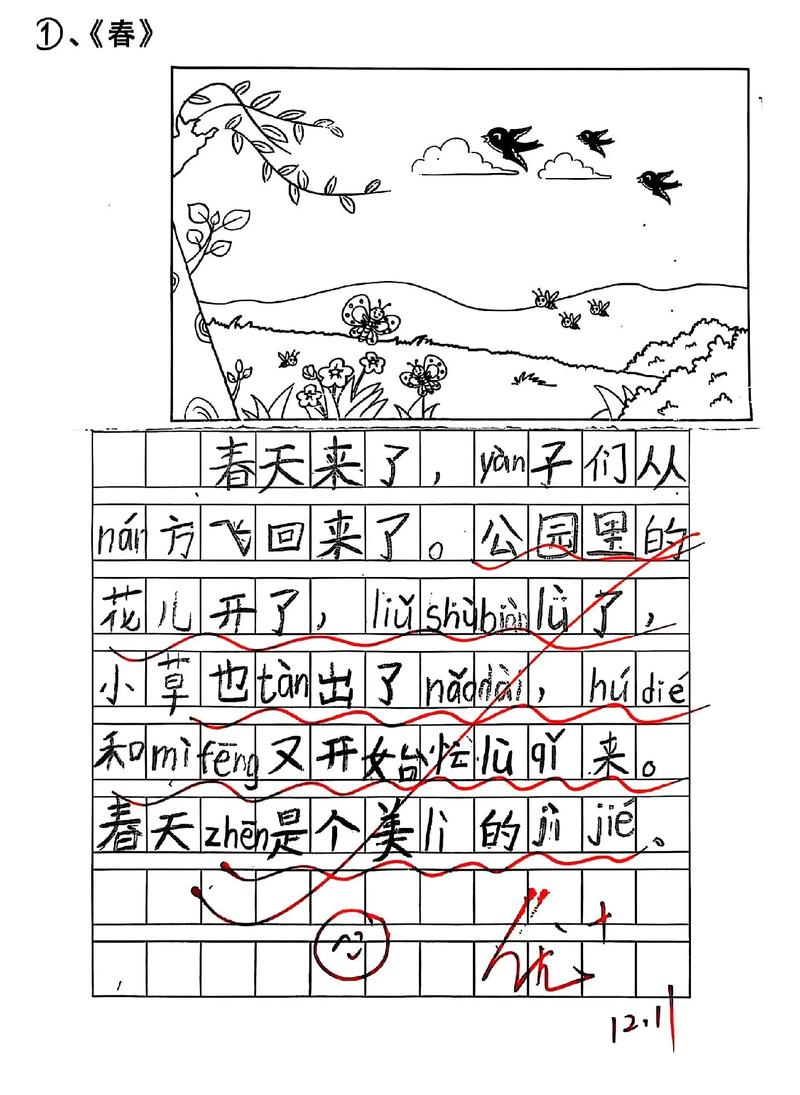 ①、《春》
春天来了，yàn子们从
nán方飞回来了。公园里的
花儿开了，liǔ shù biàn lǜ 了，
小草也tàn出了nǎo dài，hú dié
和mì fēng又开始忙lù qǐ 来。
春天zhēn是个美lì 的jì jié。
优+
12.11